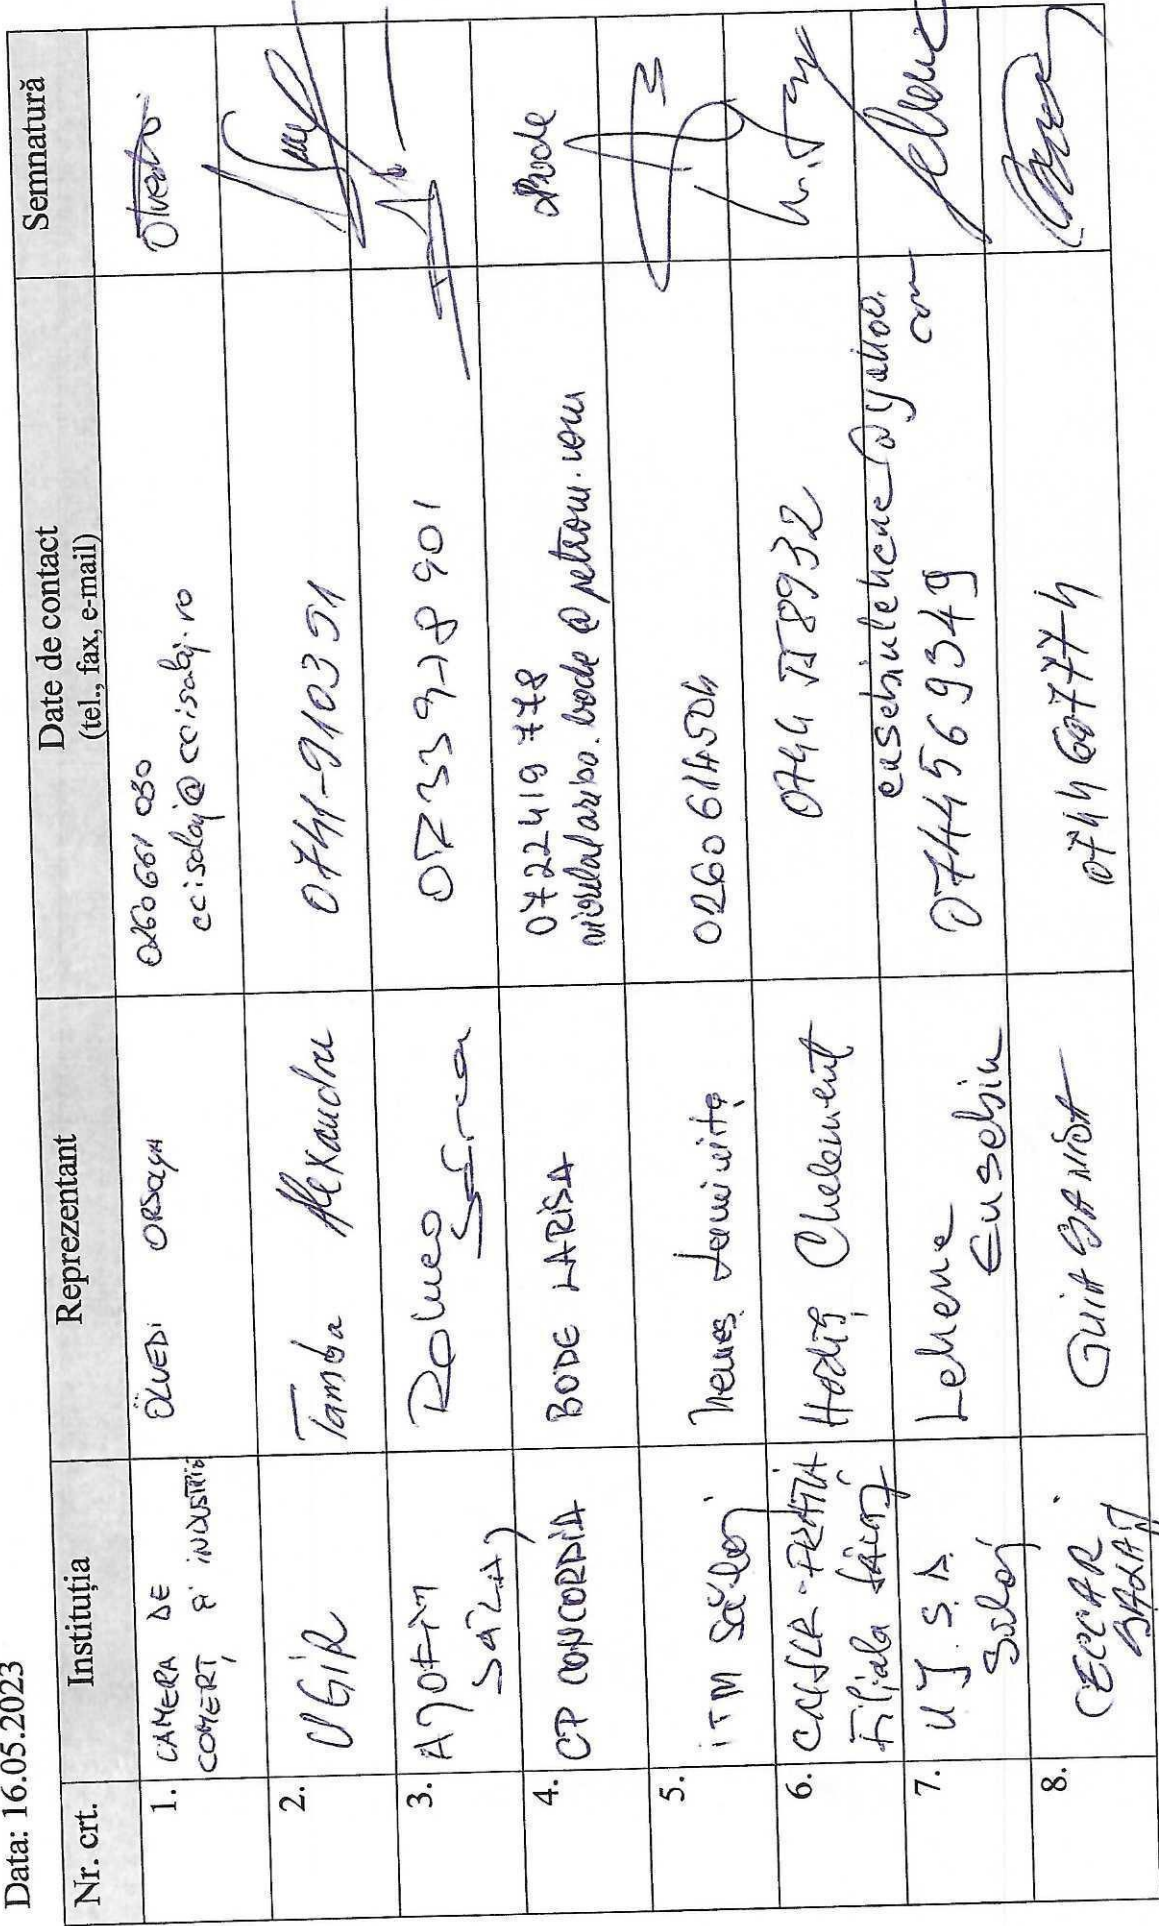 Data: 16.05.2023
Nr. crt.
Instituția
Reprezentant
Date de contact
(tel., fax, e-mail)
Semnatură
1.
CAMERA DE
COMERȚ ȘI INDUSTRIE
ÖLVEDI ORSOLYA
0260 661 030
ccisalaj@ccisalaj.ro
2.
UGIR
Tamba Alexandru
0741-910351
3.
AJOFM
SĂLAJ
Romeo
0733978901
4.
CP CONCORDIA
BODE LARISA
0722419778
bode@petrom.com
Bode
5.
ITM Sălaj
Nemeș
0260614504
6.
CNSLR-FRĂȚIA
Filiala Sălaj
Hodiș Chelement
0744 558932
7.
U J. S. D.
Sălaj
Lehene
Eusebin
eusebinlehene@yahoo.
com
0744569349
8.
CECCAR
SĂLAJ
0744607774